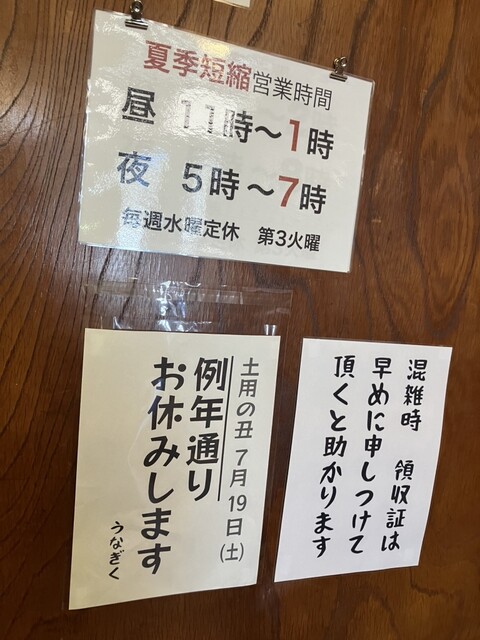 夏季短縮営業時間
昼 11時～1時
夜 5時～7時
毎週水曜定休 第3火曜
土用の丑 7月19日(土)
例年通り
お休みします
うなぎく
混雑時 領収証は
早めに申しつけて
頂くと助かります